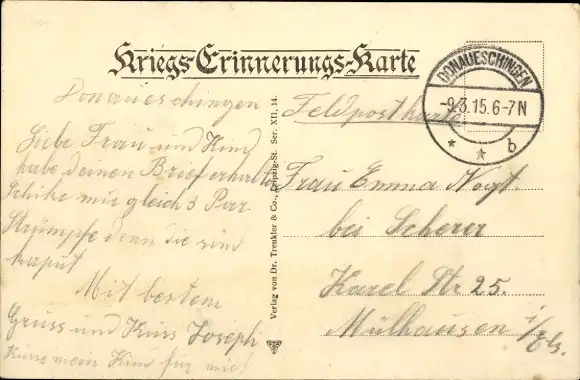 Kriegs-Erinnerungs-Karte
Donaueschingen
Liebe Frau und Kind
habe deinen Brief erhalten
Schike mir gleich 3 Par
Strümpfe denn die sind
kaput
Mit bestem
Gruss und Kuss Joseph
Küsse mein Kind für mich
Verlag von Dr. Trenkler & Co., Leipzig-St. Ser. XII, 14.
Feldpostkarte
DONAUESCHINGEN
-9.3.15.6-7N
* * b
Frau Emma Vogt
bei Scherer
Karel Str 25.
Mülhausen i/Els.